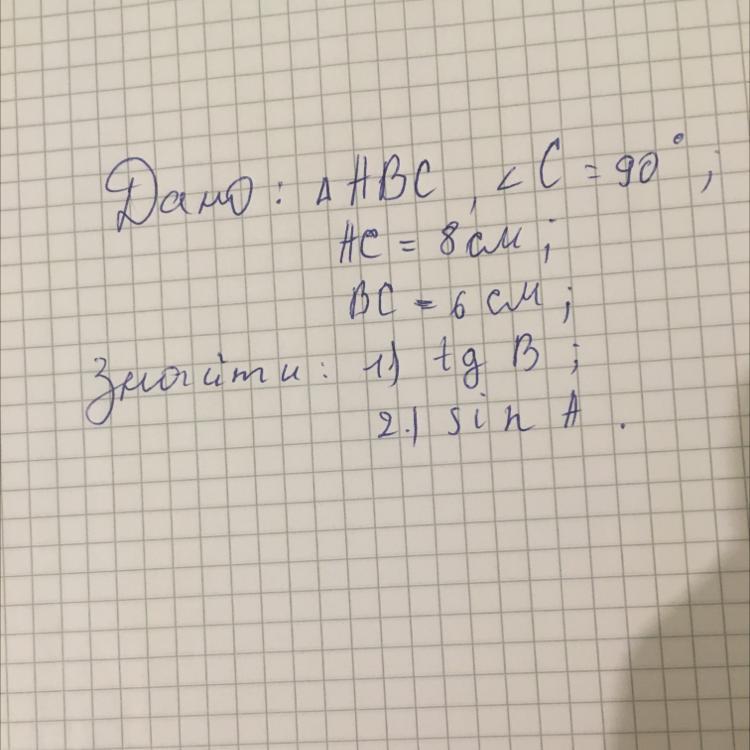 Дано: △ ABC, ∠C = 90°;
AC = 8 см;
BC = 6 см;
Знайти: 1) tg B;
2.) sin A.